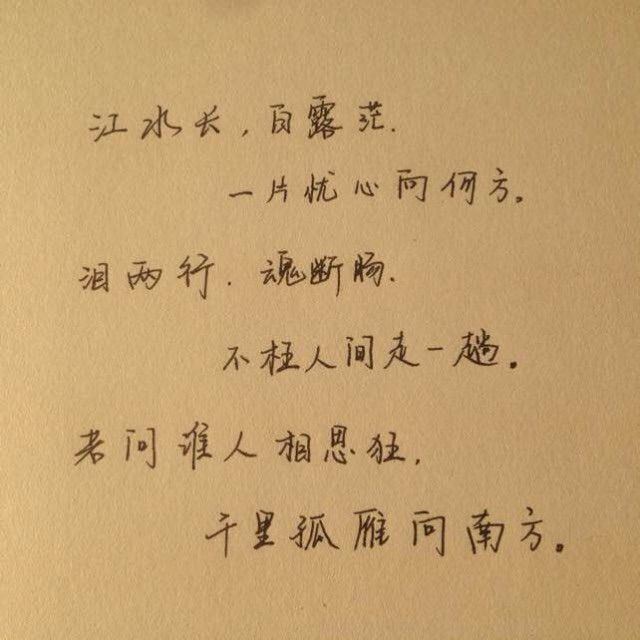 江水长，白露茫.
一片忧心向何方。
泪两行.魂断肠.
不枉人间走一趟。
若问谁人相思狂，
千里孤雁向南方。